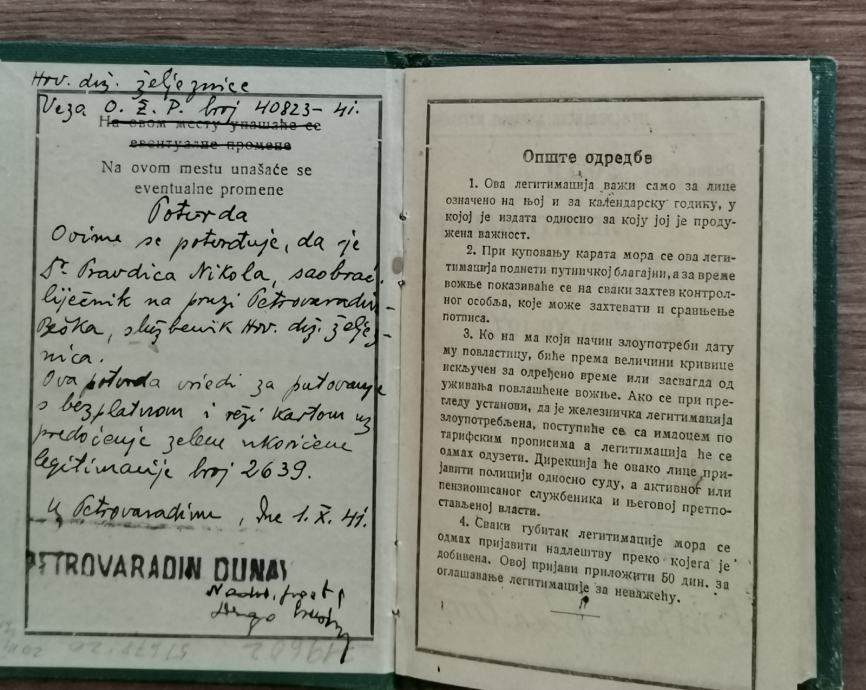 Hrv. drž. željeznice
Veza O. Ž. P. broj 40823-41.
На овом месту унашаће се
евентуалне промене
Na ovom mestu unašaće se
eventualne promene
Potvrda
Ovime se potvrđuje, da je
Dr. Pravdica Nikola, saobrać.
liječnik na pruzi Petrovaradin-
Beška, službenik Hrv. drž. željez-
nica.
Ova potvrda vriedi za putovanje
s bezplatnom i reži kartom uz
predočenje zelene ukoričene
legitimacije broj 2639.
U Petrovaradinu, dne 1.X.41.
PETROVARADIN DUNAV
319602
Опште одредбе
1. Ова легитимација важи само за лице
означено на њој и за календарску годину, у
којој је издата односно за коју јој је проду-
жена важност.
2. При куповању карата мора се ова леги-
тимација поднети путничкој благајни, а за време
вожње показиваће се на сваки захтев контрол-
ног особља, које може захтевати и сравњење
потписа.
3. Ко на ма који начин злоупотреби дату
му повластицу, биће према величини кривице
искључен за одређено време или засвагда од
уживања повлашћене вожње. Ако се при пре-
гледу установи, да је железничка легитимација
злоупотребљена, поступиће се са имаоцем по
тарифским прописима а легитимација ће се
одмах одузети. Дирекција ће овако лице при-
јавити полицији односно суду, а активног или
пензионисаног службеника и његовој претпо-
стављеној власти.
4. Сваки губитак легитимације мора се
одмах пријавити надлештву преко којега је
добивена. Овој пријави приложити 50 дин. за
оглашавање легитимације за неважећу.